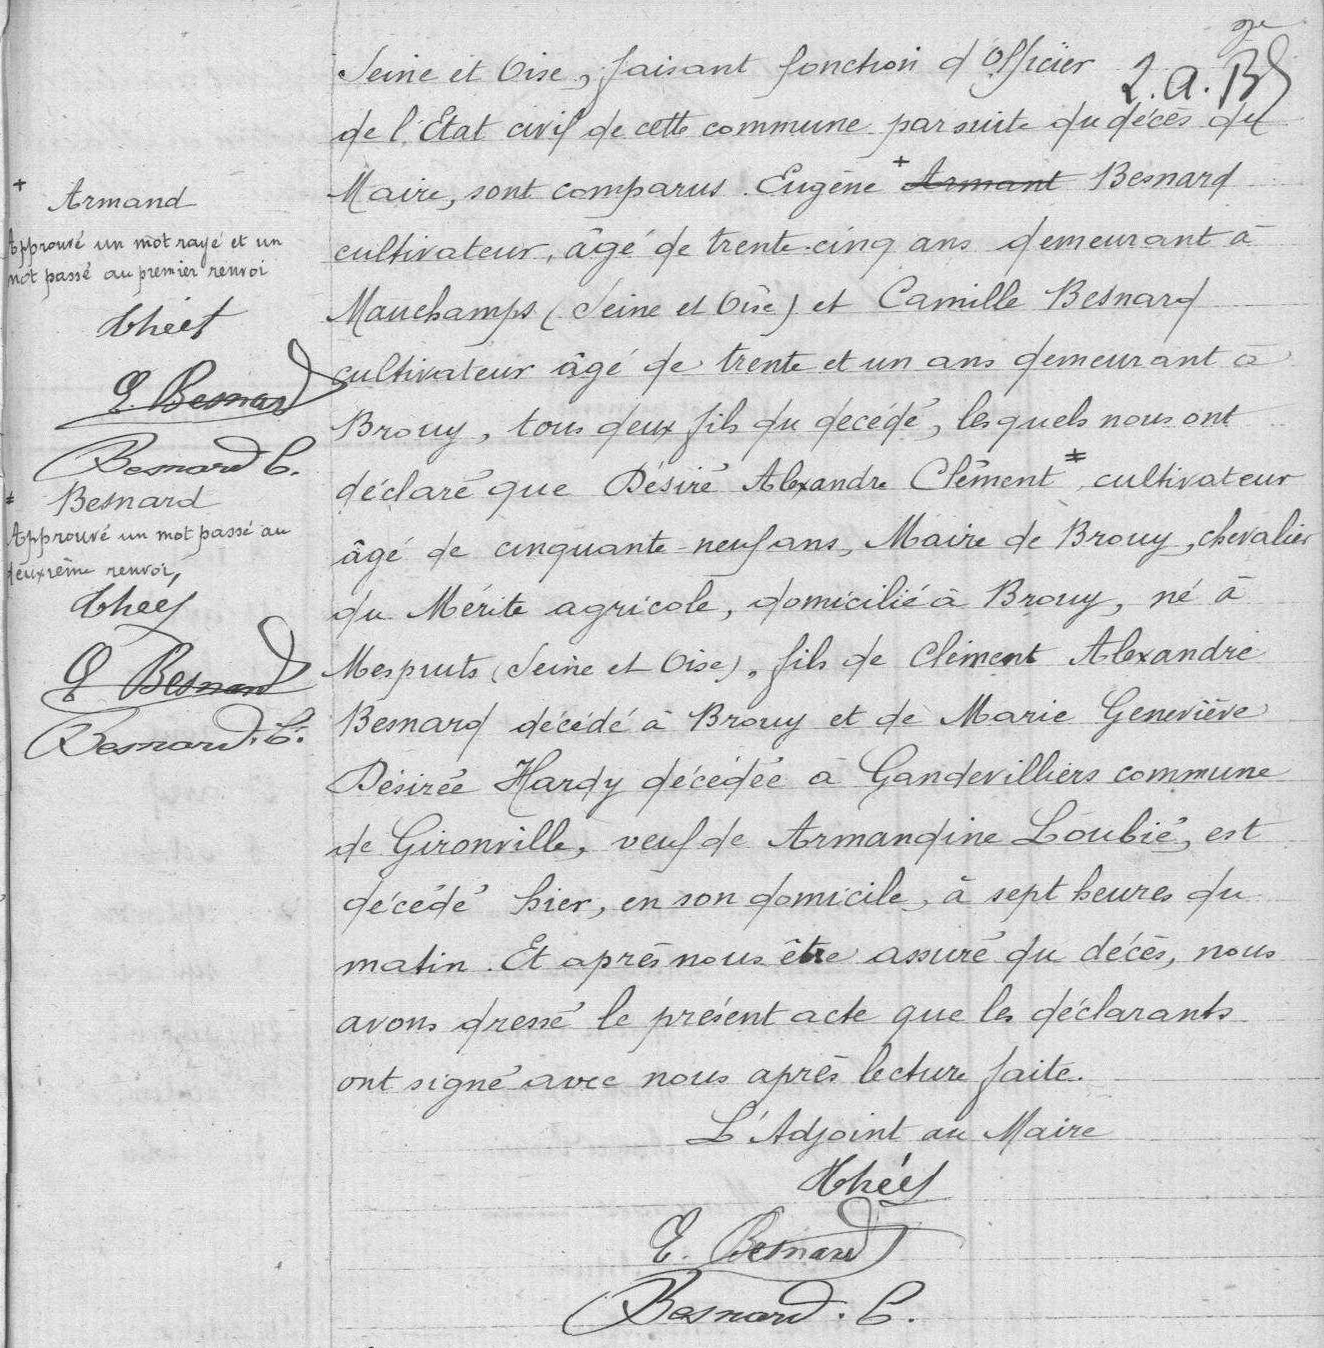 2. a. B
Seine et Oise, faisant fonction d'Officier
de l'Etat civil de cette commune par suite du décès du
Maire, sont comparus Eugène + Armant Besnard
cultivateur, âgé de trente-cinq ans demeurant à
Mauchamps (Seine et Oise) et Camille Besnard
cultivateur âgé de trente et un ans demeurant à
Brouy, tous deux fils du décédé, lesquels nous ont
déclaré que Désiré Alexandre Clément ‡, cultivateur
âgé de cinquante-neuf ans, Maire de Brouy, chevalier
du Mérite agricole, domicilié à Brouy, né à
Mespuits (Seine et Oise), fils de Clément Alexandre
Besnard décédé à Brouy et de Marie Geneviève
Désirée Hardy décédée à Gandevilliers commune
de Gironville, veuf de Armandine Loubié, est
décédé hier, en son domicile, à sept heures du
matin. Et après nous être assuré du décès, nous
avons dressé le présent acte que les déclarants
ont signé avec nous après lecture faite.
L'Adjoint au Maire
E. Besnard
Besnard. C.
+ Armand
Approuvé un mot rayé et un
mot passé au premier renvoi
E. Besnard
Besnard C.
‡ Besnard
Approuvé un mot passé au
deuxième renvoi,
E Besnard
Besnard. C.